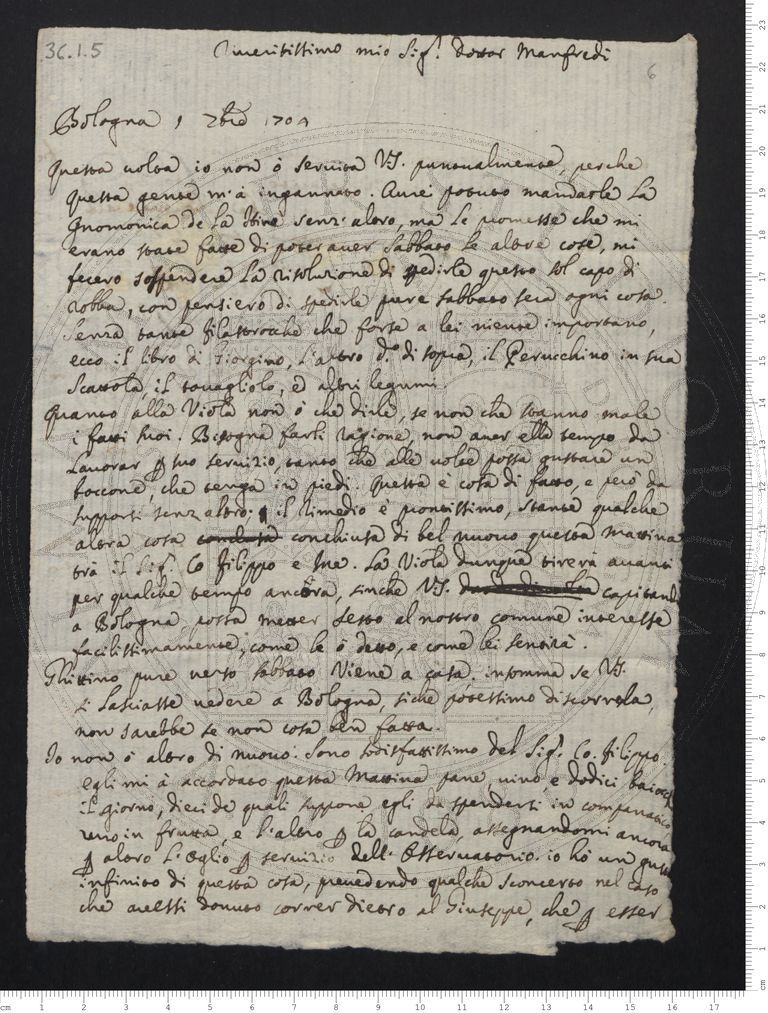 36.1.5
Riveritissimo mio Sig.r Dottor Manfredi
6
Bologna 9 7bre 1704
Questa volta io non ò servita VS. puntualmente, perche
questa gente m'à ingannato. Avrei potuto mandarle La
Gnomonica de La Hire senz'altro, ma le promesse che mi
erano state fatte di poter aver Sabbato le altre cose, mi
fecero sospendere La risoluzione di spedirle questo sol capo di
robba, con pensiero di spedirle pure sabbato sera ogni cosa.
Senza tante filastrocche che forse a lei niente importano,
ecco il libro di Giorgino, l'altro d.o di sopra, il Perucchino in sua
Scattola, il tovagliolo, ed altri legumi.
Quanto alla Viola non ò che dirle, se non che stanno male
i fatti suoi. Bisogna farli ragione, non aver ella tempo da
Lavorar p suo servizio, tanto che alle volte possa gustare un
boccone, che tenga in piedi. Questa è cosa di fatto, e però da
supporsi senz'altro. il rimedio è prontissimo, stante qualche
altra cosa conclusa conchiusa di bel nuovo questa mattina
trà il Sig.r Co Filippo e me. La Viola dunque tirerà avanti
per qualche tempo ancora, sinche VS. capitando
a Bologna, possa metter sesto al nostro comune interesse
facilissimamente, come le ò detto, e come lei sentirà.
Ghisino pure verso sabbato viene a casa. insomma se VS.
si lasciasse vedere a Bologna, siche potessimo discorrela,
non sarebbe se non cosa ben fatta.
Io non ò altro di nuovo. Sono sodisfattissimo del Sig.r Co. Filippo.
egli mi à accordato questa Mattina pane, vino e dodici baiocchi
il giorno, dieci de quali suppone egli da spendersi in companatico
uno in frutta, e l'altro p la candela, assegnandomi ancora
p altro l'oglio p servizio dell'Osservatorio. io hò un gusto
infinito di questa cosa, prevedendo qualche sconcerto nel caso
che avessi dovuto correr dietro al Giuseppe, che p esser